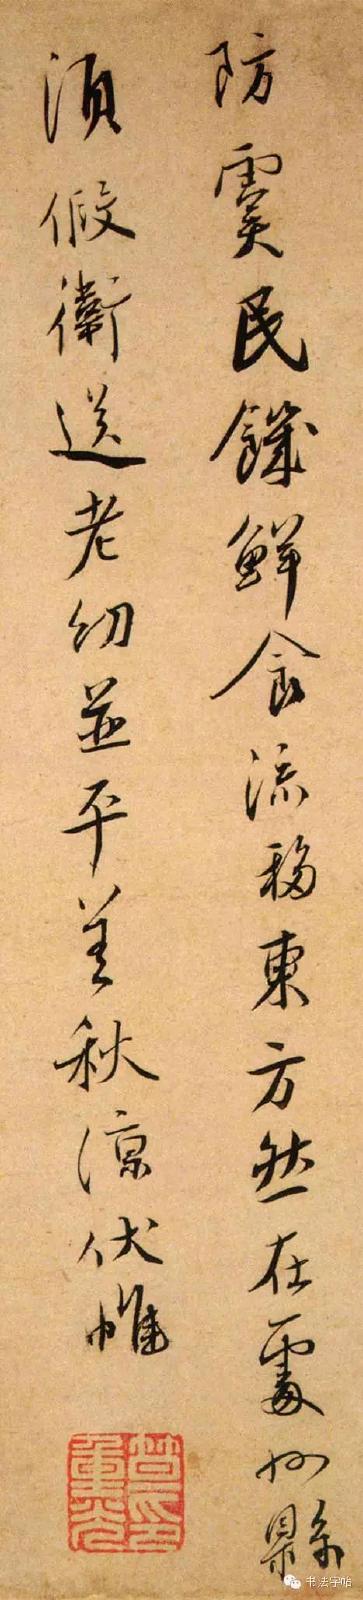 防虞民饑鮮食流移東方然在處州縣
須假衛送老幼並平善秋凉伏惟
书法字帖